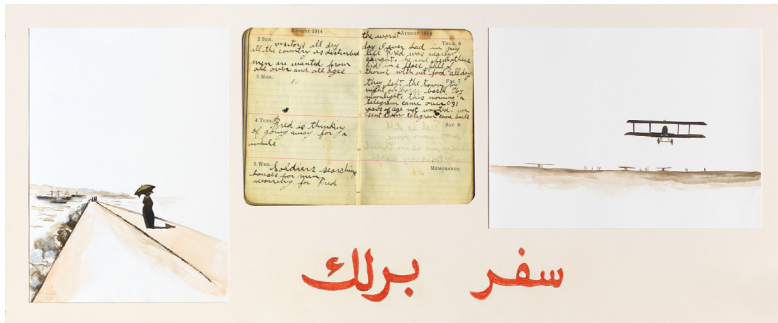 AUGUST 1914
2 SUN.
visitors all day
all the country is disturbed
men are wanted from
all over and all ages
3 MON.
4 TUES.
Fred is thinking
of going away for a
while
5 WED.
Soldiers searching
houses for men
worrying for Fred
AUGUST 1914
the worst
THUR. 6
day I ever had in my
life Fred was nearly
caught, he and
hid in a place
without food all day
they left the town by
night on horse back by
moonlight, this morning a
telegram came over 31
years of age not wanted, we
sent telegram
SAT. 8
MEMORANDA
سفر برلك